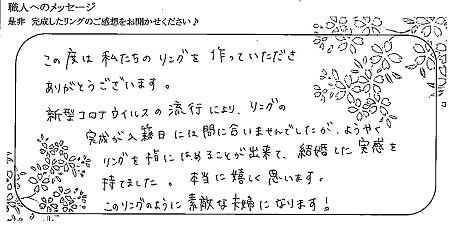 職人へのメッセージ
是非 完成したリングのご感想をお聞かせください♪
この度は私たちのリングを作っていただき
ありがとうございます。
新型コロナウイルスの流行により、リングの
完成が入籍日には間に合いませんでしたが、ようやく
リングを指にはめることが出来て、結婚した実感を
持てました。本当に嬉しく思います。
このリングのように素敵な夫婦になります!